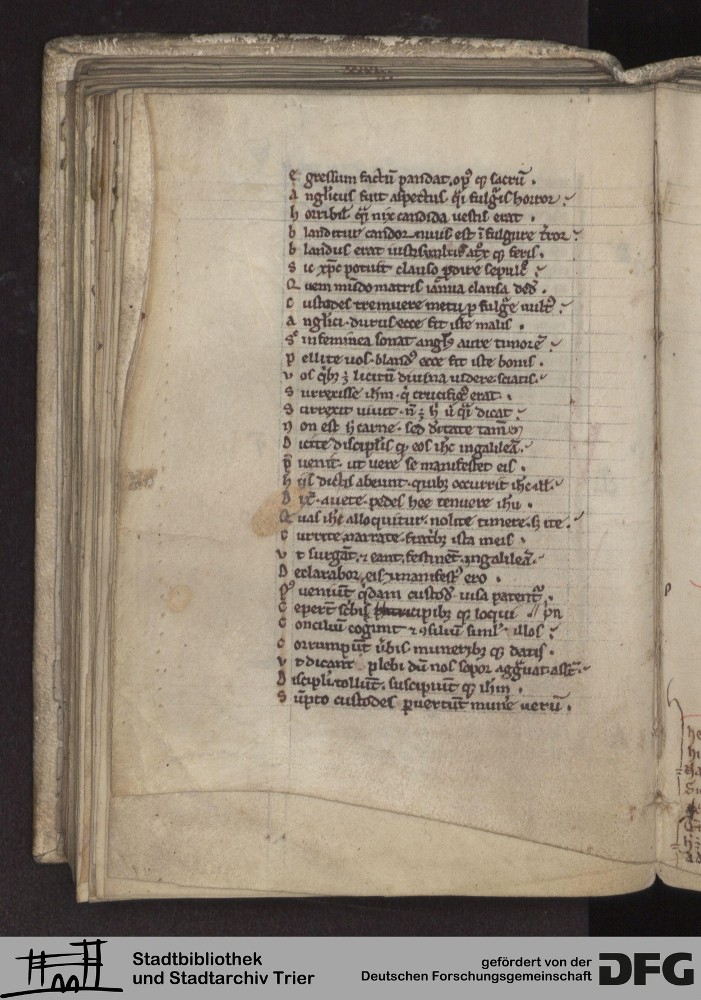 Egressum factū pandat. opꝰ qꝫ sacrū.
Anglicus fuit aspectus q̄i fulgris horror
Horribil' q̄i nix candida vestis erat.
Blanditur candor nivis est ī fulgure t̄ror
Blandus erat iustis simul atrox qꝫ feris.
Sic xp̄c potuit clauso p̄dire sepulc̄
Quem mūdo matris ianua clausa ded̄.
Custodes tremuere metu p fulḡe vult'
Anglici. durus ecce fit iste malis.
Sꝫ in feminea sonat angl's aure timorē
Pellite vos. blandꝰ ecce fit iste bonis.
Vos qͥbꝫ ꝫ licitū divina videre. sciatis.
Surrexisse ihm. qͥ crucifixꝰ erat.
Surrexit vivit. n̄ ꝫ h̄ ... dicat
Non est h̄ carne. sed v̄itate tam̄
Dicite discipl'is qꝫ eos ihc in galilea
P̄venit. ut vere se manifestet eis.
Hiis dictis abeunt. quibꝫ occurrit ihc ill'.
Dix̄. avete. pedes hee tenuere ihu.
Quas ihc alloquitur. nolite timere. sꝫ ite.
Currite narrate. fratribꝫ ista meis.
Vt surgāt. ⁊ eant. festinēt. in galileā.
Declarabor eis ⁊ manifestꝰ ero.
Pꝰ veniūt qͥdam custod' visa patent'.
Ceperūt scribis principibꝫ qꝫ loqui
Conciliū cogunt ⁊ ꝯsiliū simul illos
Corrumpūt v̄bis muneribꝫ qꝫ datis.
Vt dicant plebi dū nos sopor aggravat. astāt.
Discipli. tollūt. suscipiūt qꝫ ihm.
Sūpto custodes p̄vertūt mun̄e verū.
Stadtbibliothek
und Stadtarchiv Trier
gefördert von der
Deutschen Forschungsgemeinschaft
DFG